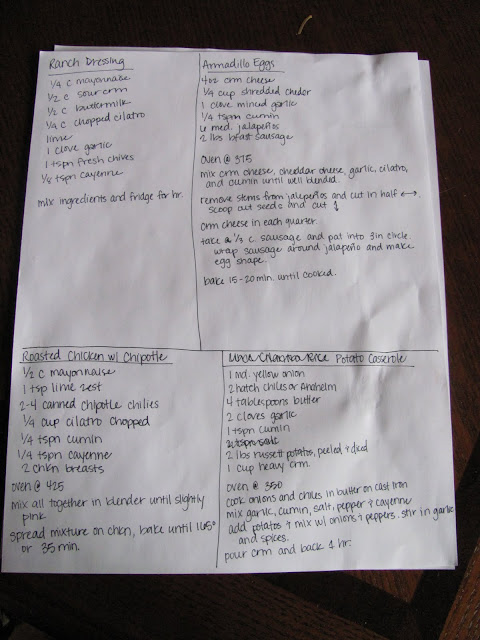 Ranch Dressing
1/4 c mayonnaise
1/2 c sour crm
1/2 c buttermilk
1/4 c chopped cilatro
lime
1 clove garlic
1 tspn fresh chives
1/8 tspn cayenne
mix ingredients and fridge for hr.
Armadillo Eggs
4oz crm cheese
1/4 cup shredded chedor
1 clove minced garlic
1/4 tspn cumin
6 med. jalapeños
2 lbs bfast sausage
oven @ 375
mix crm cheese, cheddar cheese, garlic, cilatro,
and cumin until well blended.
remove stems from jalepeños and cut in half ↔,
scoop out seeds and cut ↕
crm cheese in each quarter.
take 1/3 c. sausage and pat into 3in circle.
wrap sausage around jalapeño and make
egg shape.
bake 15-20 min. until cooked.
Roasted Chicken w/ Chipotle
1/2 c mayonnaise
1 tsp lime zest
2-4 canned chipotle chilies
1/4 cup cilatro chopped
1/4 tspn cumin
1/4 tspn cayenne
2 chkn breasts
oven @ 425
mix all together in blender until slightly
pink.
spread mixture on chkn, bake until 165°
or 35 min.
Potato Casserole
1 md. yellow onion
2 hatch chiles or Anaheim
4 tablespoons butter
2 cloves garlic
1 tspn cumin
2 lbs russett potatos, peeled & diced
1 cup heavy crm.
oven @ 350
cook onions and chiles in butter on cast iron
mix garlic, cumin, salt, pepper & cayenne
add potatos & mix w/ onions & peppers. stir in garlic
and spices.
pour crm and back 1 hr.